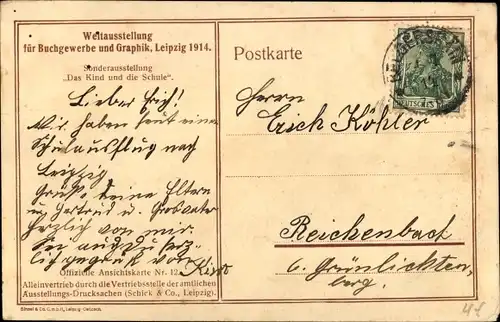 Weltausstellung
für Buchgewerbe und Graphik, Leipzig 1914.
Sonderausstellung
„Das Kind und die Schule“.
Lieber Erich!
Wir haben heut einen
Schulausflug nach
Leipzig
Grüße deine Eltern
u. Gertrud u. Grosvater
herzlich von mir.
Sei auch du herz-
lich gegrüßt von
Offizielle Ansichtskarte Nr. 12.
Alleinvertrieb durch die Vertriebsstelle der amtlichen
Ausstellungs-Drucksachen (Schick & Co., Leipzig).
Postkarte
Herrn
Erich Köhler
Reichenbach
b. Grünlichten-
berg.